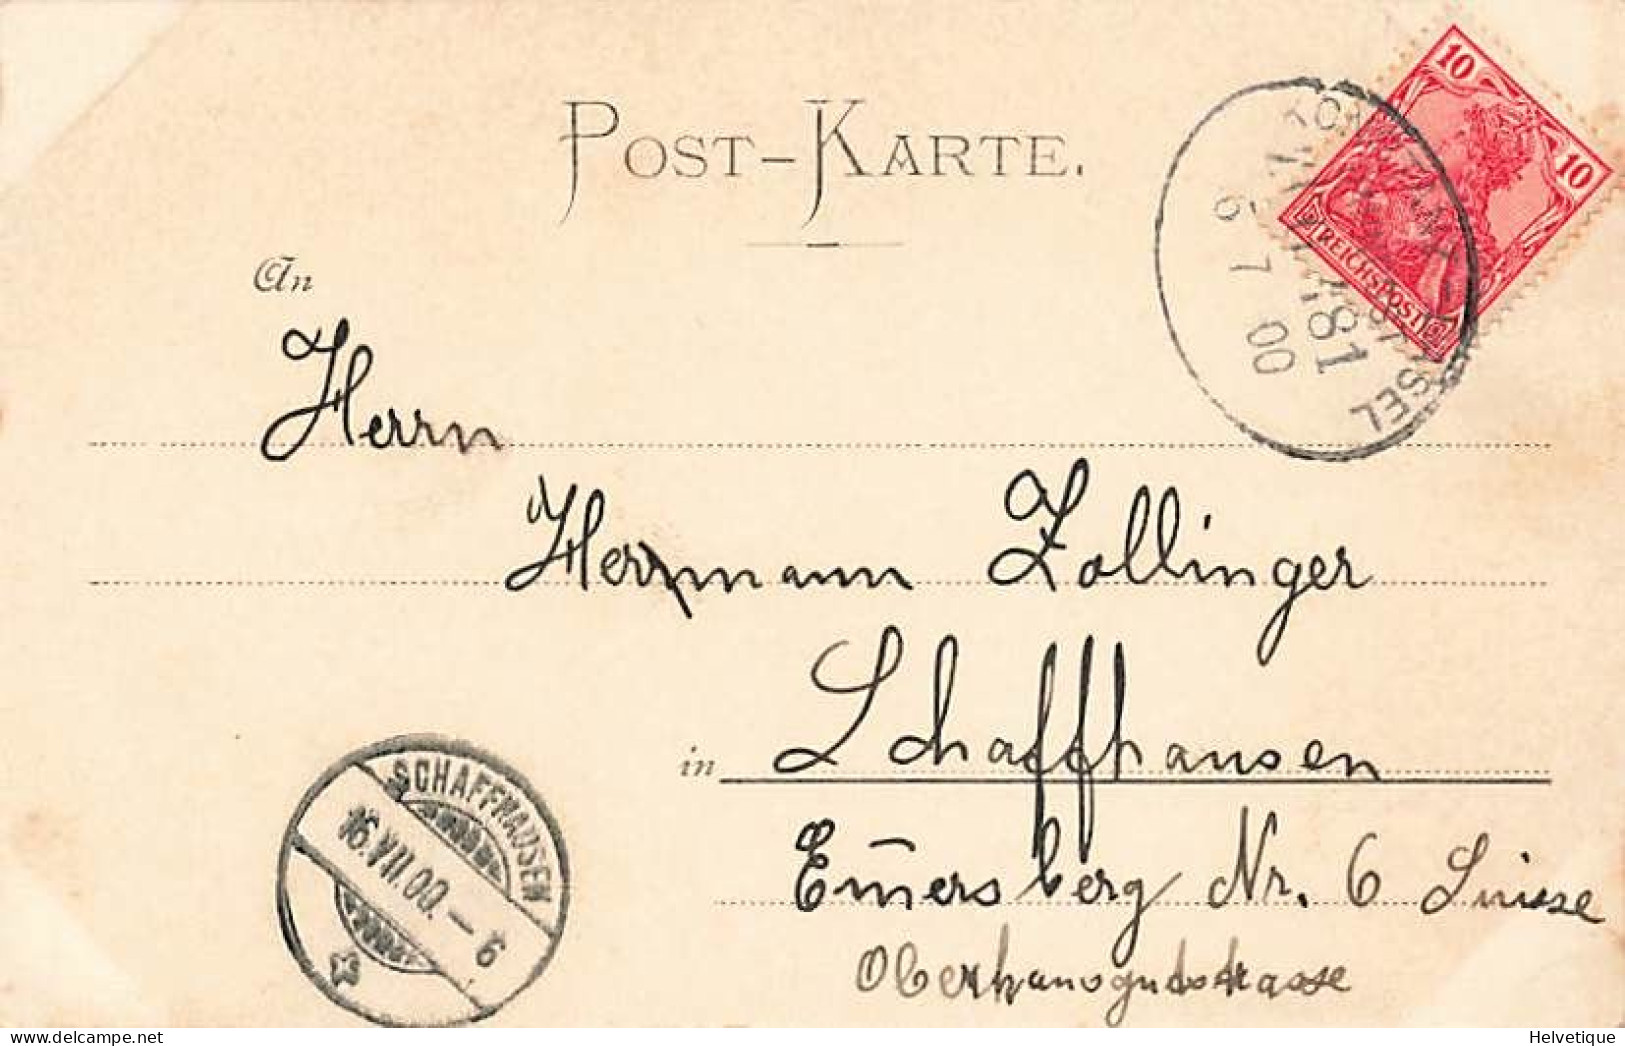 POST-KARTE.
10
10
REICHSPOST
6 7 00
An
Herrn
Herrmann Zollinger
in Schaffhausen
Em̄ersberg Nr. 6 Suisse
SCHAFFHAUSEN
16.VII.00.–6
Helvetique